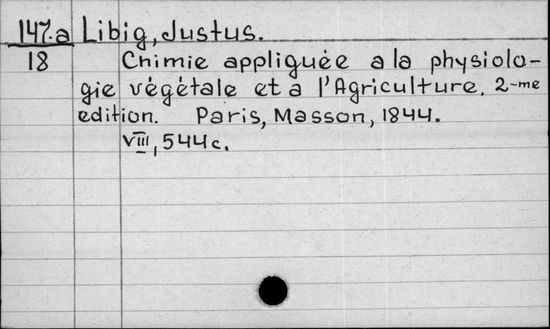 147.a Libig, Justus.
18 Chimie appliquée a la physiolo-
gie végétale et a l'Agriculture. 2-me
edition. Paris, Masson, 1844.
VIII, 544 c.